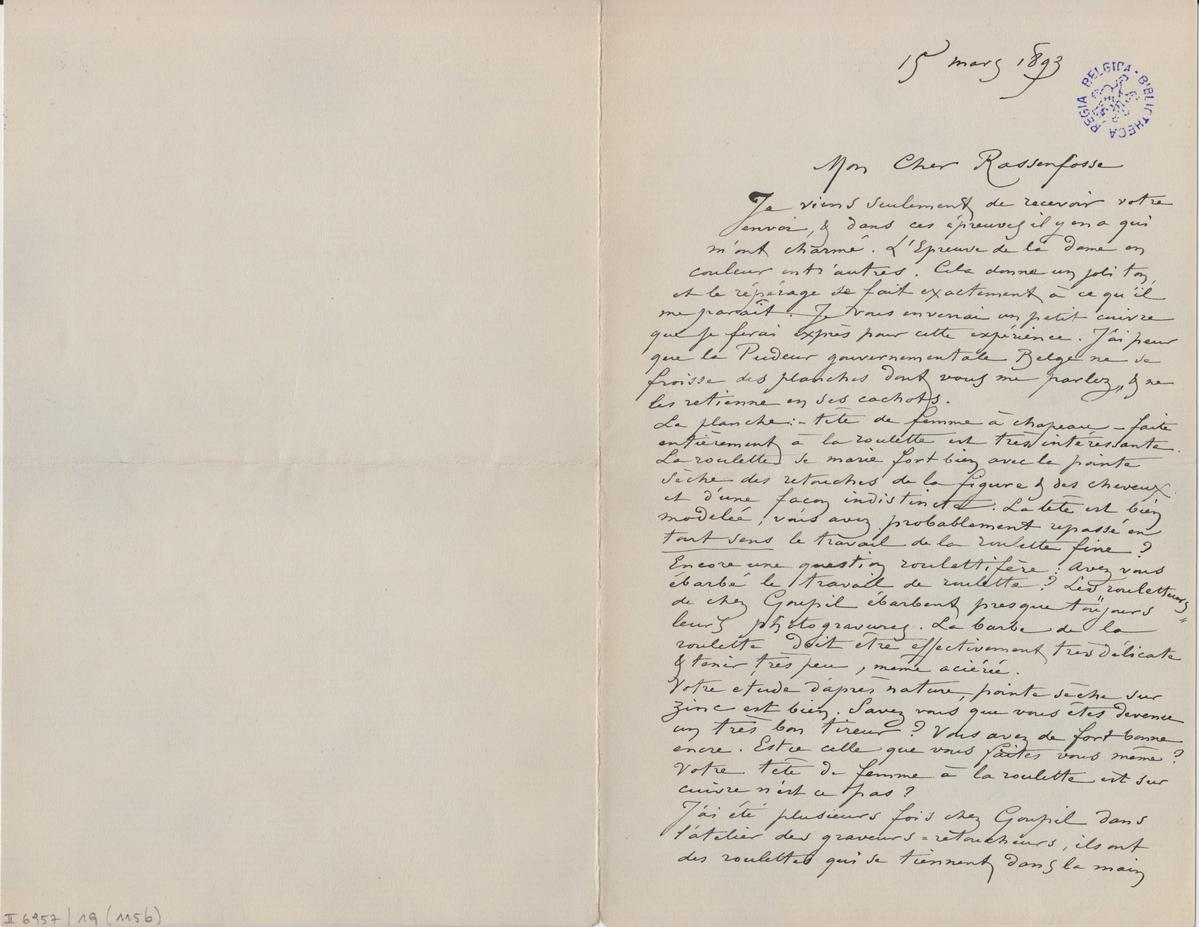 15 mars 1893
REGIA BELGICA · BIBLIOTHECA
Mon Cher Rassenfosse
Je viens seulement de recevoir votre
envoi, & dans ces épreuves il y en a qui
m'ont charmé. L'Epreuve de la dame en
couleur entr'autres. Cela donne un joli ton,
et le répérage se fait exactement à ce qu'il
me paraît. Je vous enverrai un petit cuivre
que je ferai exprès pour cette expérience. J'ai peur
que la Pudeur gouvernementale Belge ne se
froisse des planches dont vous me parlez, & ne
les retienne en ses cachots.
La planche :- tête de femme à chapeau - faite
entièrement à la roulette est très intéressante.
La roulette se marie fort bien avec la pointe
sèche des retouches de la figure & des cheveux
et d'une façon indistincte. La tête est bien
modelée, vous avez probablement repassé en
tout sens le travail de la roulette fine ?
Encore une question roulettifère : Avez vous
ébarbé le travail de roulette ? Les "rouletteurs"
de chez Goupil ébarbent presque toujours
leurs photogravures. La barbe de la
roulette doit être effectivement très délicate
& tenir très peu, même aciérée.
Votre étude d'après nature, pointe sèche sur
zinc est bien. Savez vous que vous êtes devenu
un très bon tireur ? Vous avez de fort bonne
encre. Est ce celle que vous faites vous même ?
Votre tête de femme à la roulette est sur
cuivre n'est ce pas ?
J'ai été plusieurs fois chez Goupil dans
l'atelier des graveurs=retoucheurs, ils ont
des roulettes qui se tiennent dans la main
II 6957/19 (115b)